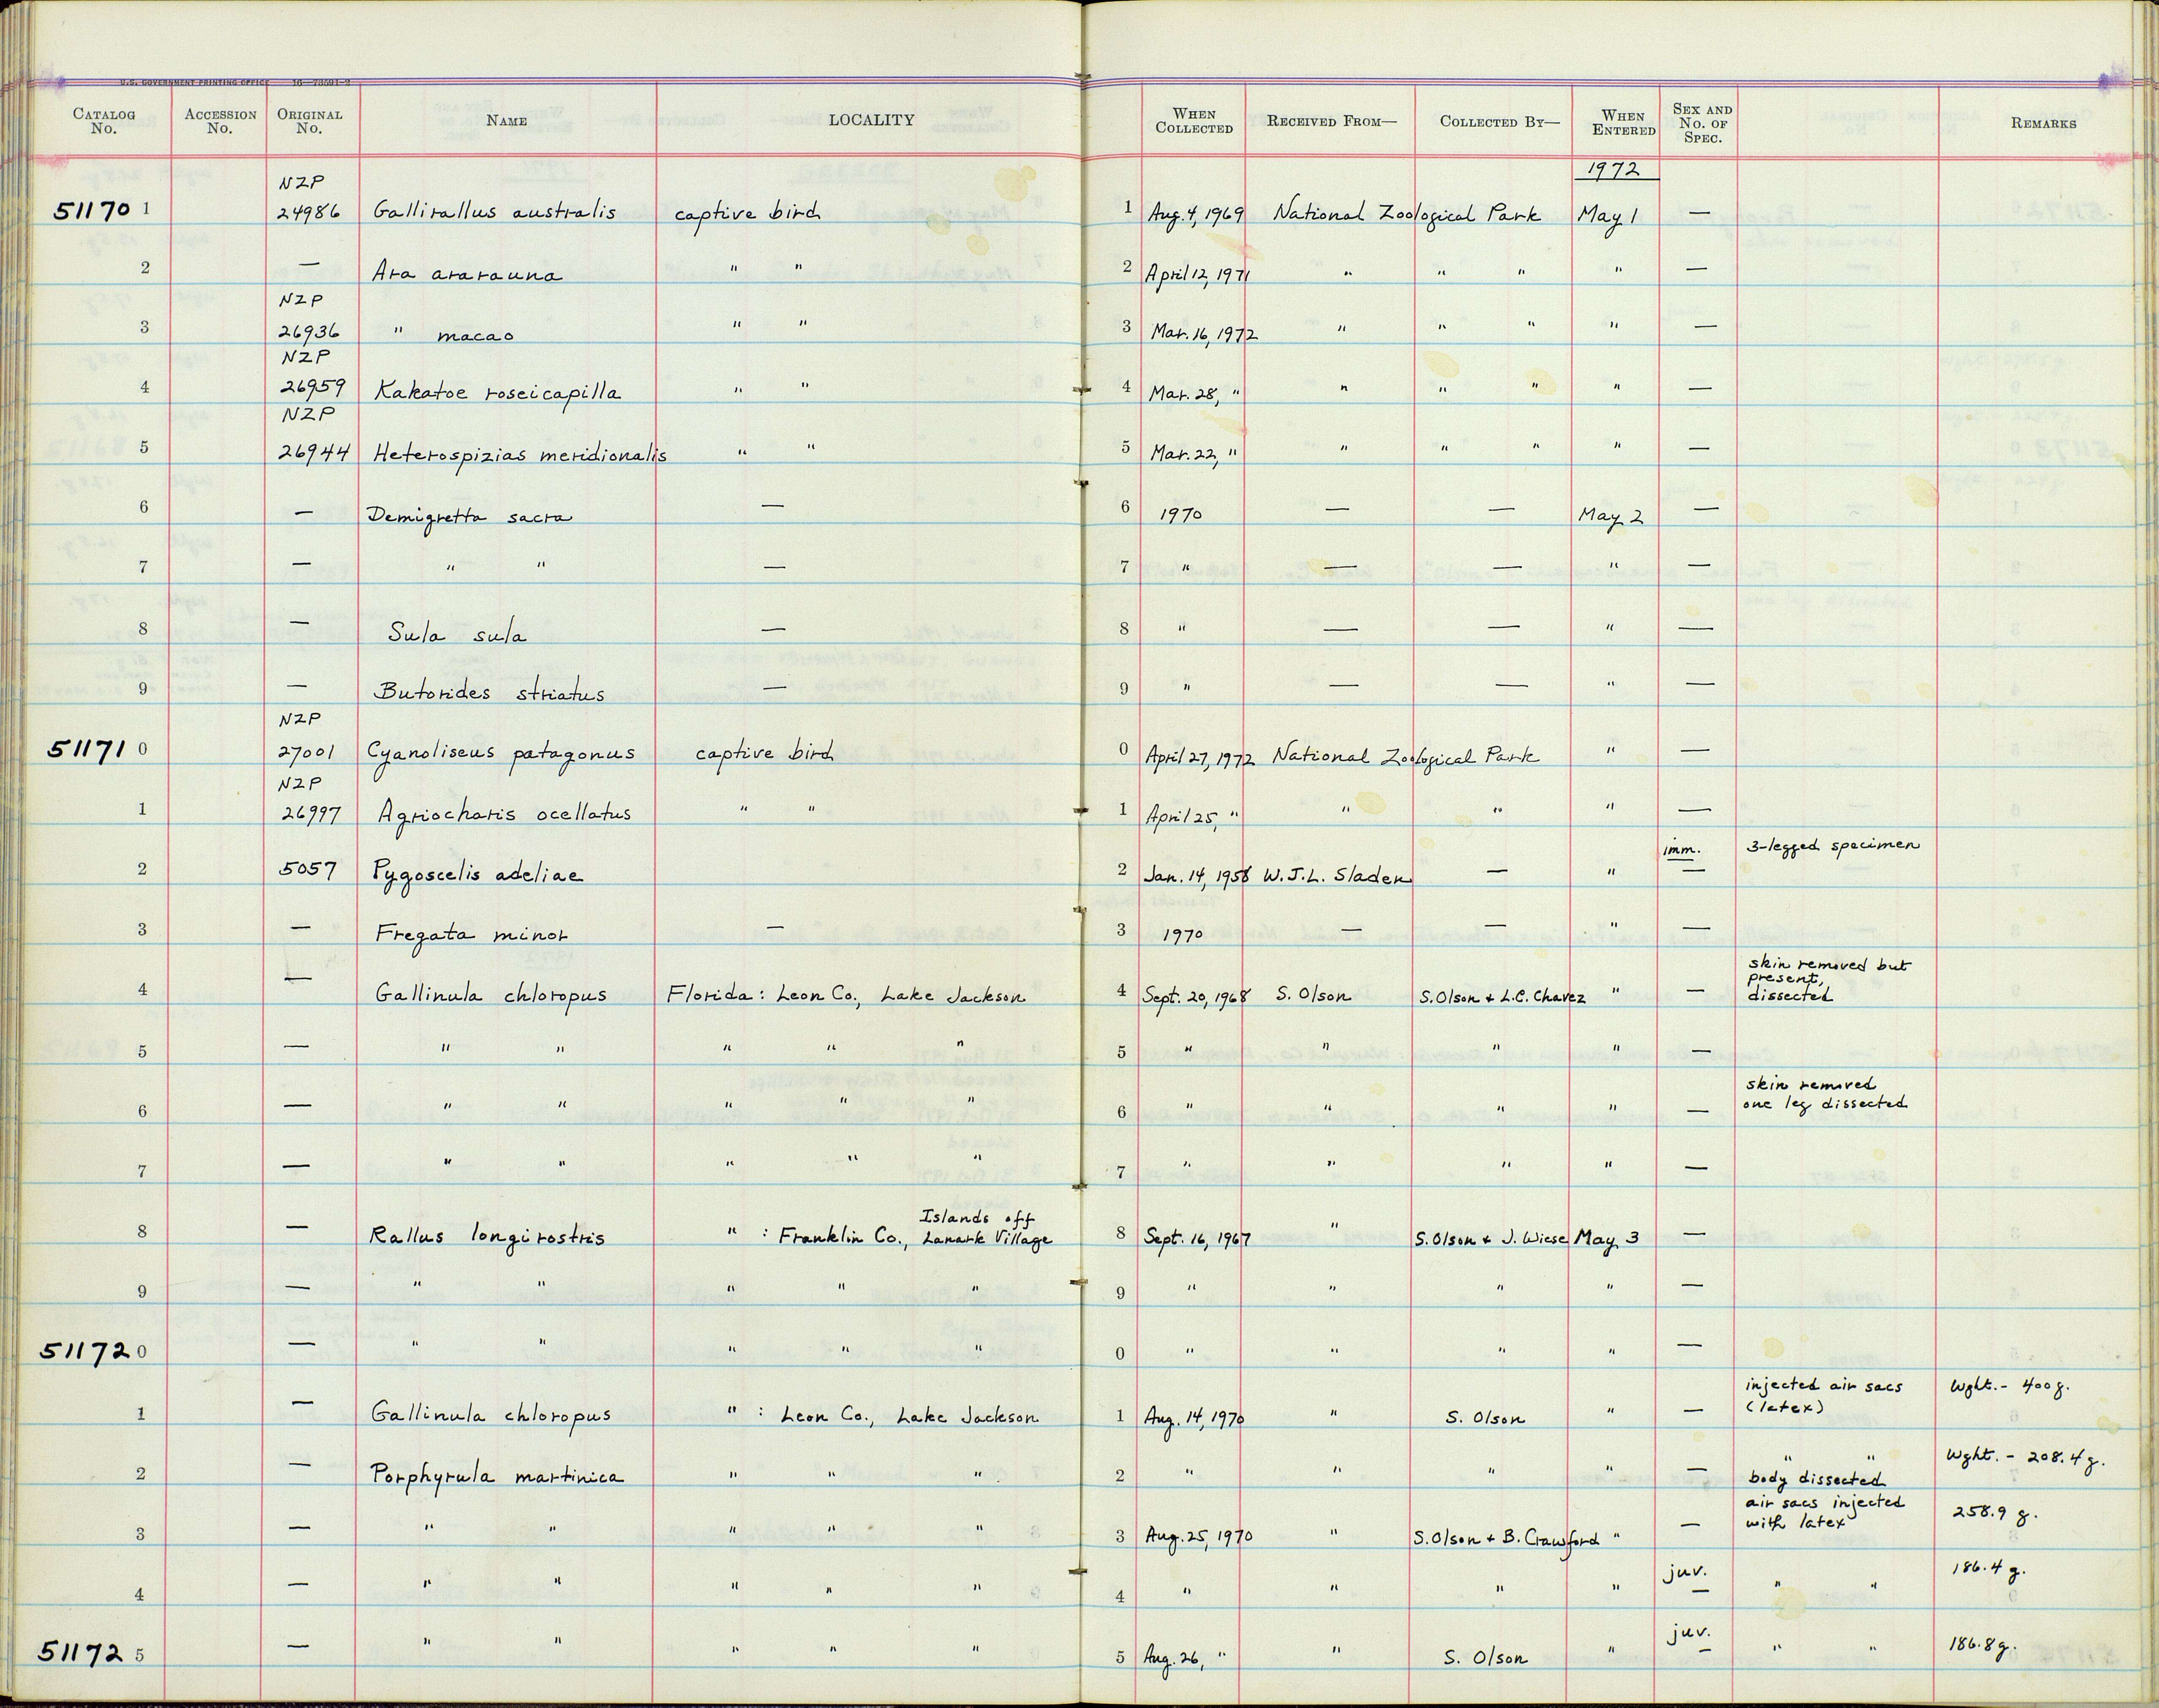 U.S. GOVERNMENT PRINTING OFFICE 16—73591-2
CATALOG No. ACCESSION No. ORIGINAL No. NAME LOCALITY WHEN COLLECTED RECEIVED FROM— COLLECTED BY— WHEN ENTERED SEX AND No. OF SPEC. REMARKS
1972
NZP
51170 1 24986 Gallirallus australis captive bird 1 Aug. 4, 1969 National Zoological Park May 1 —
2 — Ara ararauna " " 2 April 12, 1971 " " " " —
NZP
3 26936 " macao " " 3 Mar. 16, 1972 " " " " —
NZP
4 26959 Kakatoe roseicapilla " " 4 Mar. 28, " " " " " —
NZP
5 26944 Heterospizias meridionalis " " 5 Mar. 22, " " " " " —
6 — Demigretta sacra — 6 1970 — — May 2 —
7 — " " — 7 " — — " —
8 — Sula sula — 8 " — — " —
9 — Butorides striatus — 9 " — — " —
NZP
51171 0 27001 Cyanoliseus patagonus captive bird 0 April 27, 1972 National Zoological Park " —
NZP
1 26997 Agriocharis ocellatus " " 1 April 25, " " " " —
imm. 3-legged specimen
2 5057 Pygoscelis adeliae 2 Jan. 14, 1958 W.J.L. Sladen — " —
3 — Fregata minor — 3 1970 — — " —
skin removed but
present,
4 — Gallinula chloropus Florida: Leon Co., Lake Jackson 4 Sept. 20, 1968 S. Olson S. Olson + L.C. Chavez " — dissected
5 — " " " " " 5 " " " " —
skin removed
6 — " " " " " 6 " " " " — one leg dissected
7 — " " " " " 7 " " " " —
Islands off
8 — Rallus longirostris " : Franklin Co., Lanark Village 8 Sept. 16, 1967 " S. Olson + J. Wiese May 3 —
9 — " " " " " 9 " " " " —
51172 0 — " " " " " 0 " " " " —
injected air sacs Wght. - 400 g.
1 — Gallinula chloropus " : Leon Co., Lake Jackson 1 Aug. 14, 1970 " S. Olson " — (latex)
" " Wght. - 208.4 g.
2 — Porphyrula martinica " " " 2 " " " " — body dissected
air sacs injected
3 — " " " " " 3 Aug. 25, 1970 " S. Olson + B. Crawford " — with latex 258.9 g.
4 — " " " " " 4 " " " " juv. — " " 186.4 g.
51172 5 — " " " " " 5 Aug. 26, " " S. Olson " juv. — " " 186.8 g.